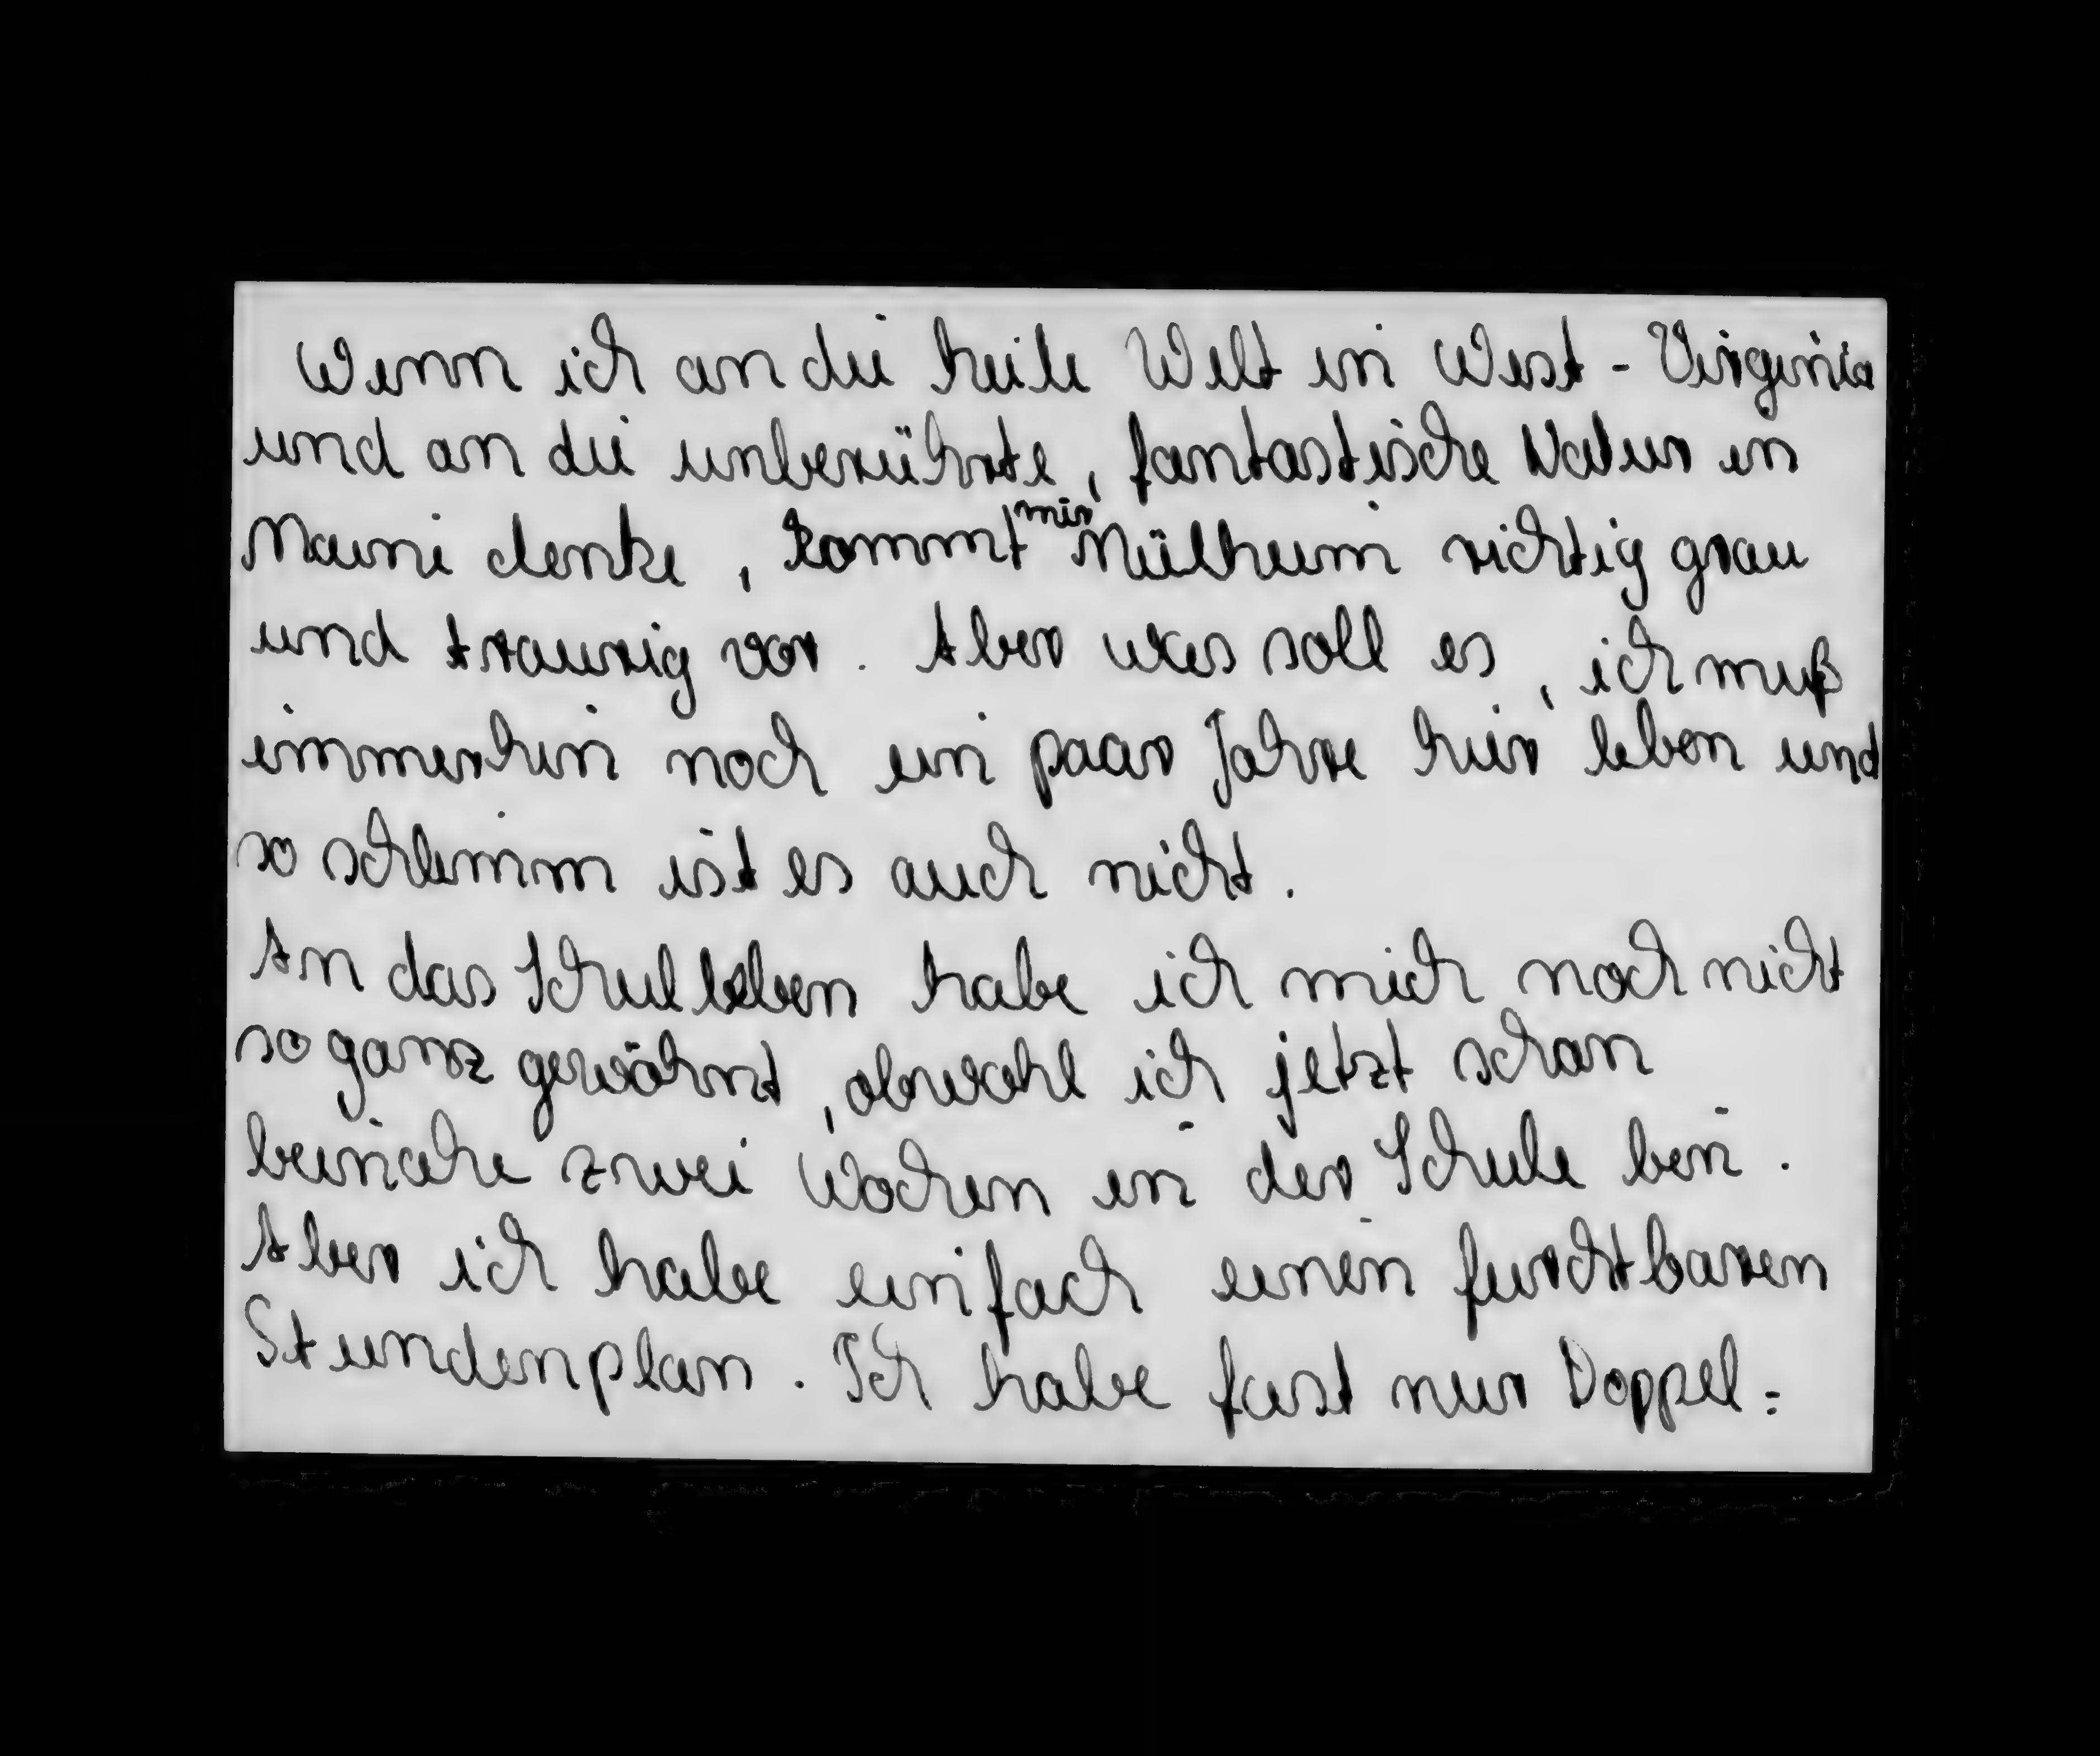 Wenn ich an die heile Welt in West-Virginia
und an die unberührte, fantastische Natur in
Maine denke, kommt mir Mülheim richtig grau
und traurig vor. Aber was soll es, ich muß
immerhin noch ein paar Jahre hier leben und
so schlimm ist es auch nicht.
An das Schulleben habe ich mich noch nicht
so ganz gewöhnt, obwohl ich jetzt schon
beinahe zwei Wochen in der Schule bin.
Aber ich habe einfach einen furchtbaren
Stundenplan. Ich habe fast nur Doppel=